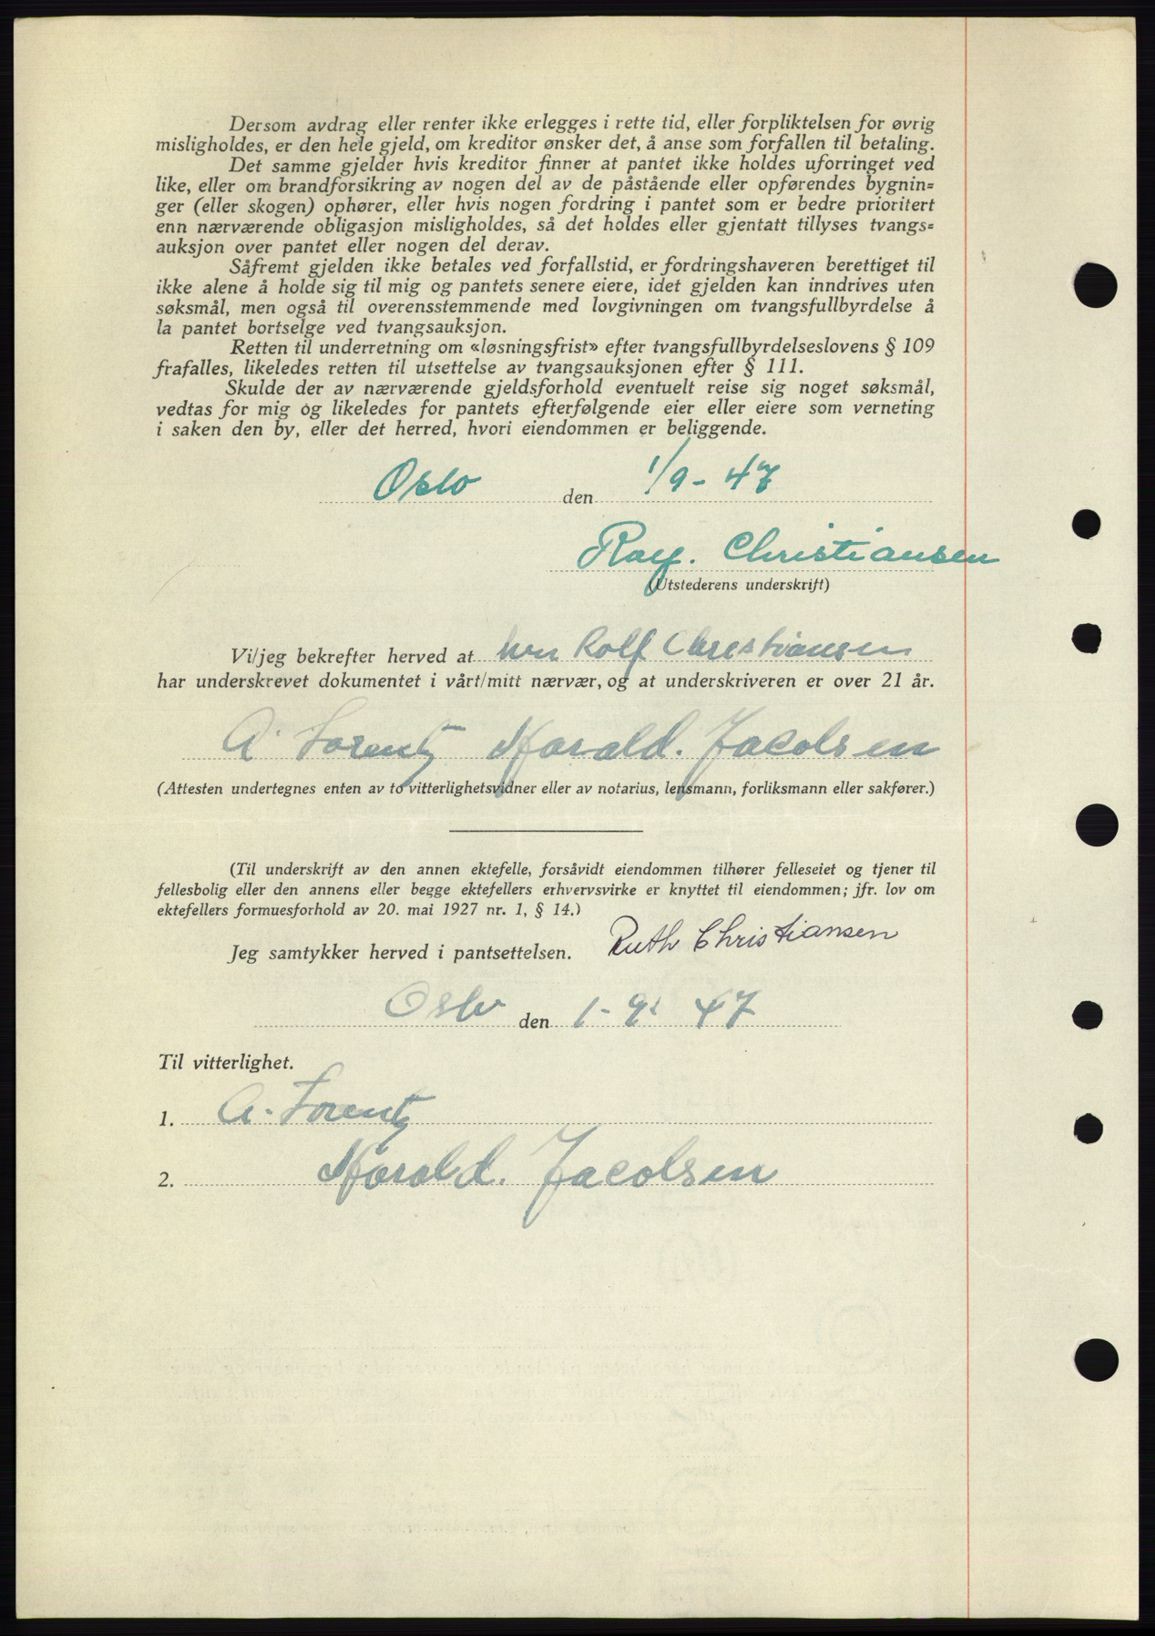 Dersom avdrag eller renter ikke erlegges i rette tid, eller forpliktelsen for øvrig
misligholdes, er den hele gjeld, om kreditor ønsker det, å anse som forfallen til betaling.
Det samme gjelder hvis kreditor finner at pantet ikke holdes uforringet ved
like, eller om brandforsikring av nogen del av de påstående eller opførendes bygnin=
ger (eller skogen) ophører, eller hvis nogen fordring i pantet som er bedre prioritert
enn nærværende obligasjon misligholdes, så det holdes eller gjentatt tillyses tvangs=
auksjon over pantet eller nogen del derav.
Såfremt gjelden ikke betales ved forfallstid, er fordringshaveren berettiget til
ikke alene å holde sig til mig og pantets senere eiere, idet gjelden kan inndrives uten
søksmål, men også til overensstemmende med lovgivningen om tvangsfullbyrdelse å
la pantet bortselge ved tvangsauksjon.
Retten til underretning om «løsningsfrist» efter tvangsfullbyrdelseslovens § 109
frafalles, likeledes retten til utsettelse av tvangsauksjonen efter § 111.
Skulde der av nærværende gjeldsforhold eventuelt reise sig noget søksmål,
vedtas for mig og likeledes for pantets efterfølgende eier eller eiere som verneting
i saken den by, eller det herred, hvori eiendommen er beliggende.
Oslo den 1/9-47
Christiansen
(Utstederens underskrift)
Vi/jeg bekrefter herved at herr Rolf Christiansen
har underskrevet dokumentet i vårt/mitt nærvær, og at underskriveren er over 21 år.
A. Lorentz Harald. Jacobsen
(Attesten undertegnes enten av to vitterlighetsvidner eller av notarius, lensmann, forliksmann eller sakfører.)
(Til underskrift av den annen ektefelle, forsåvidt eiendommen tilhører felleseiet og tjener til
fellesbolig eller den annens eller begge ektefellers erhvervsvirke er knyttet til eiendommen; jfr. lov om
ektefellers formuesforhold av 20. mai 1927 nr. 1, § 14.)
Jeg samtykker herved i pantsettelsen. Ruth Christiansen
Oslo den 1-9-47
Til vitterlighet.
1. A. Lorentz
2. Harald. Jacobsen